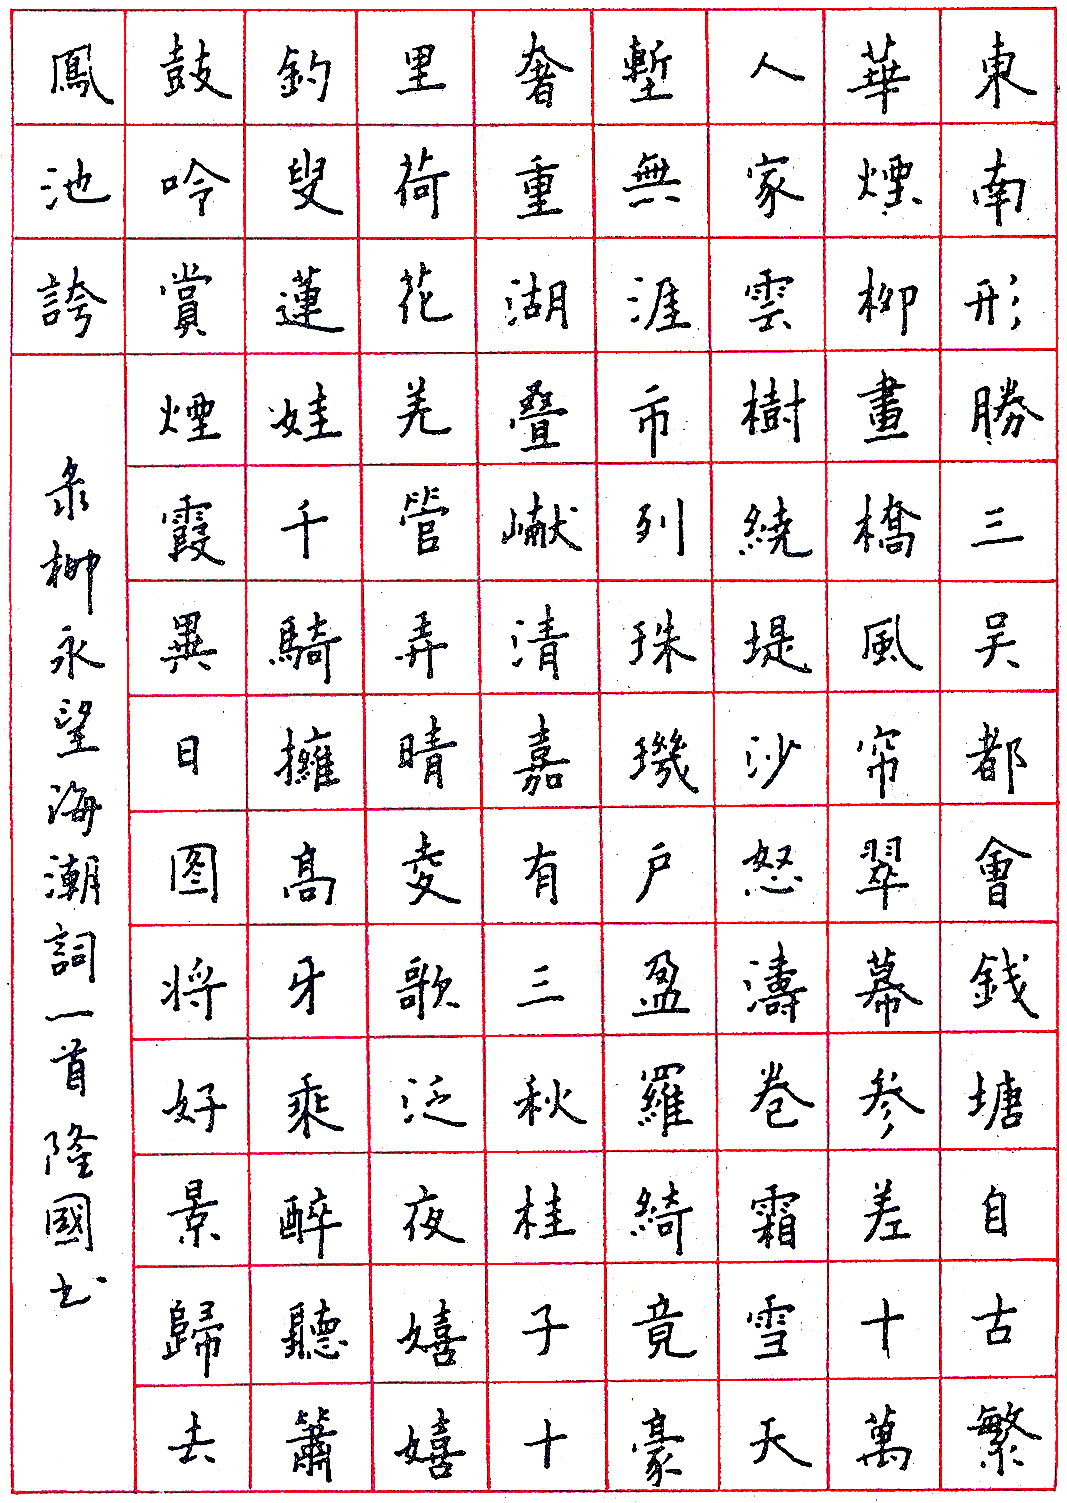 東南形勝三吴都會錢塘自古繁
華煙柳畫橋風帘翠幕参差十萬
人家雲樹繞堤沙怒濤卷霜雪天
塹無涯市列珠璣户盈羅綺竟豪
奢重湖叠巘清嘉有三秋桂子十
里荷花羌管弄晴夌歌泛夜嬉嬉
釣叟蓮娃千騎擁高牙乘醉聽簫
鼓吟賞煙霞異日图将好景歸去
鳳池誇
录柳永望海潮詞一首隆國书